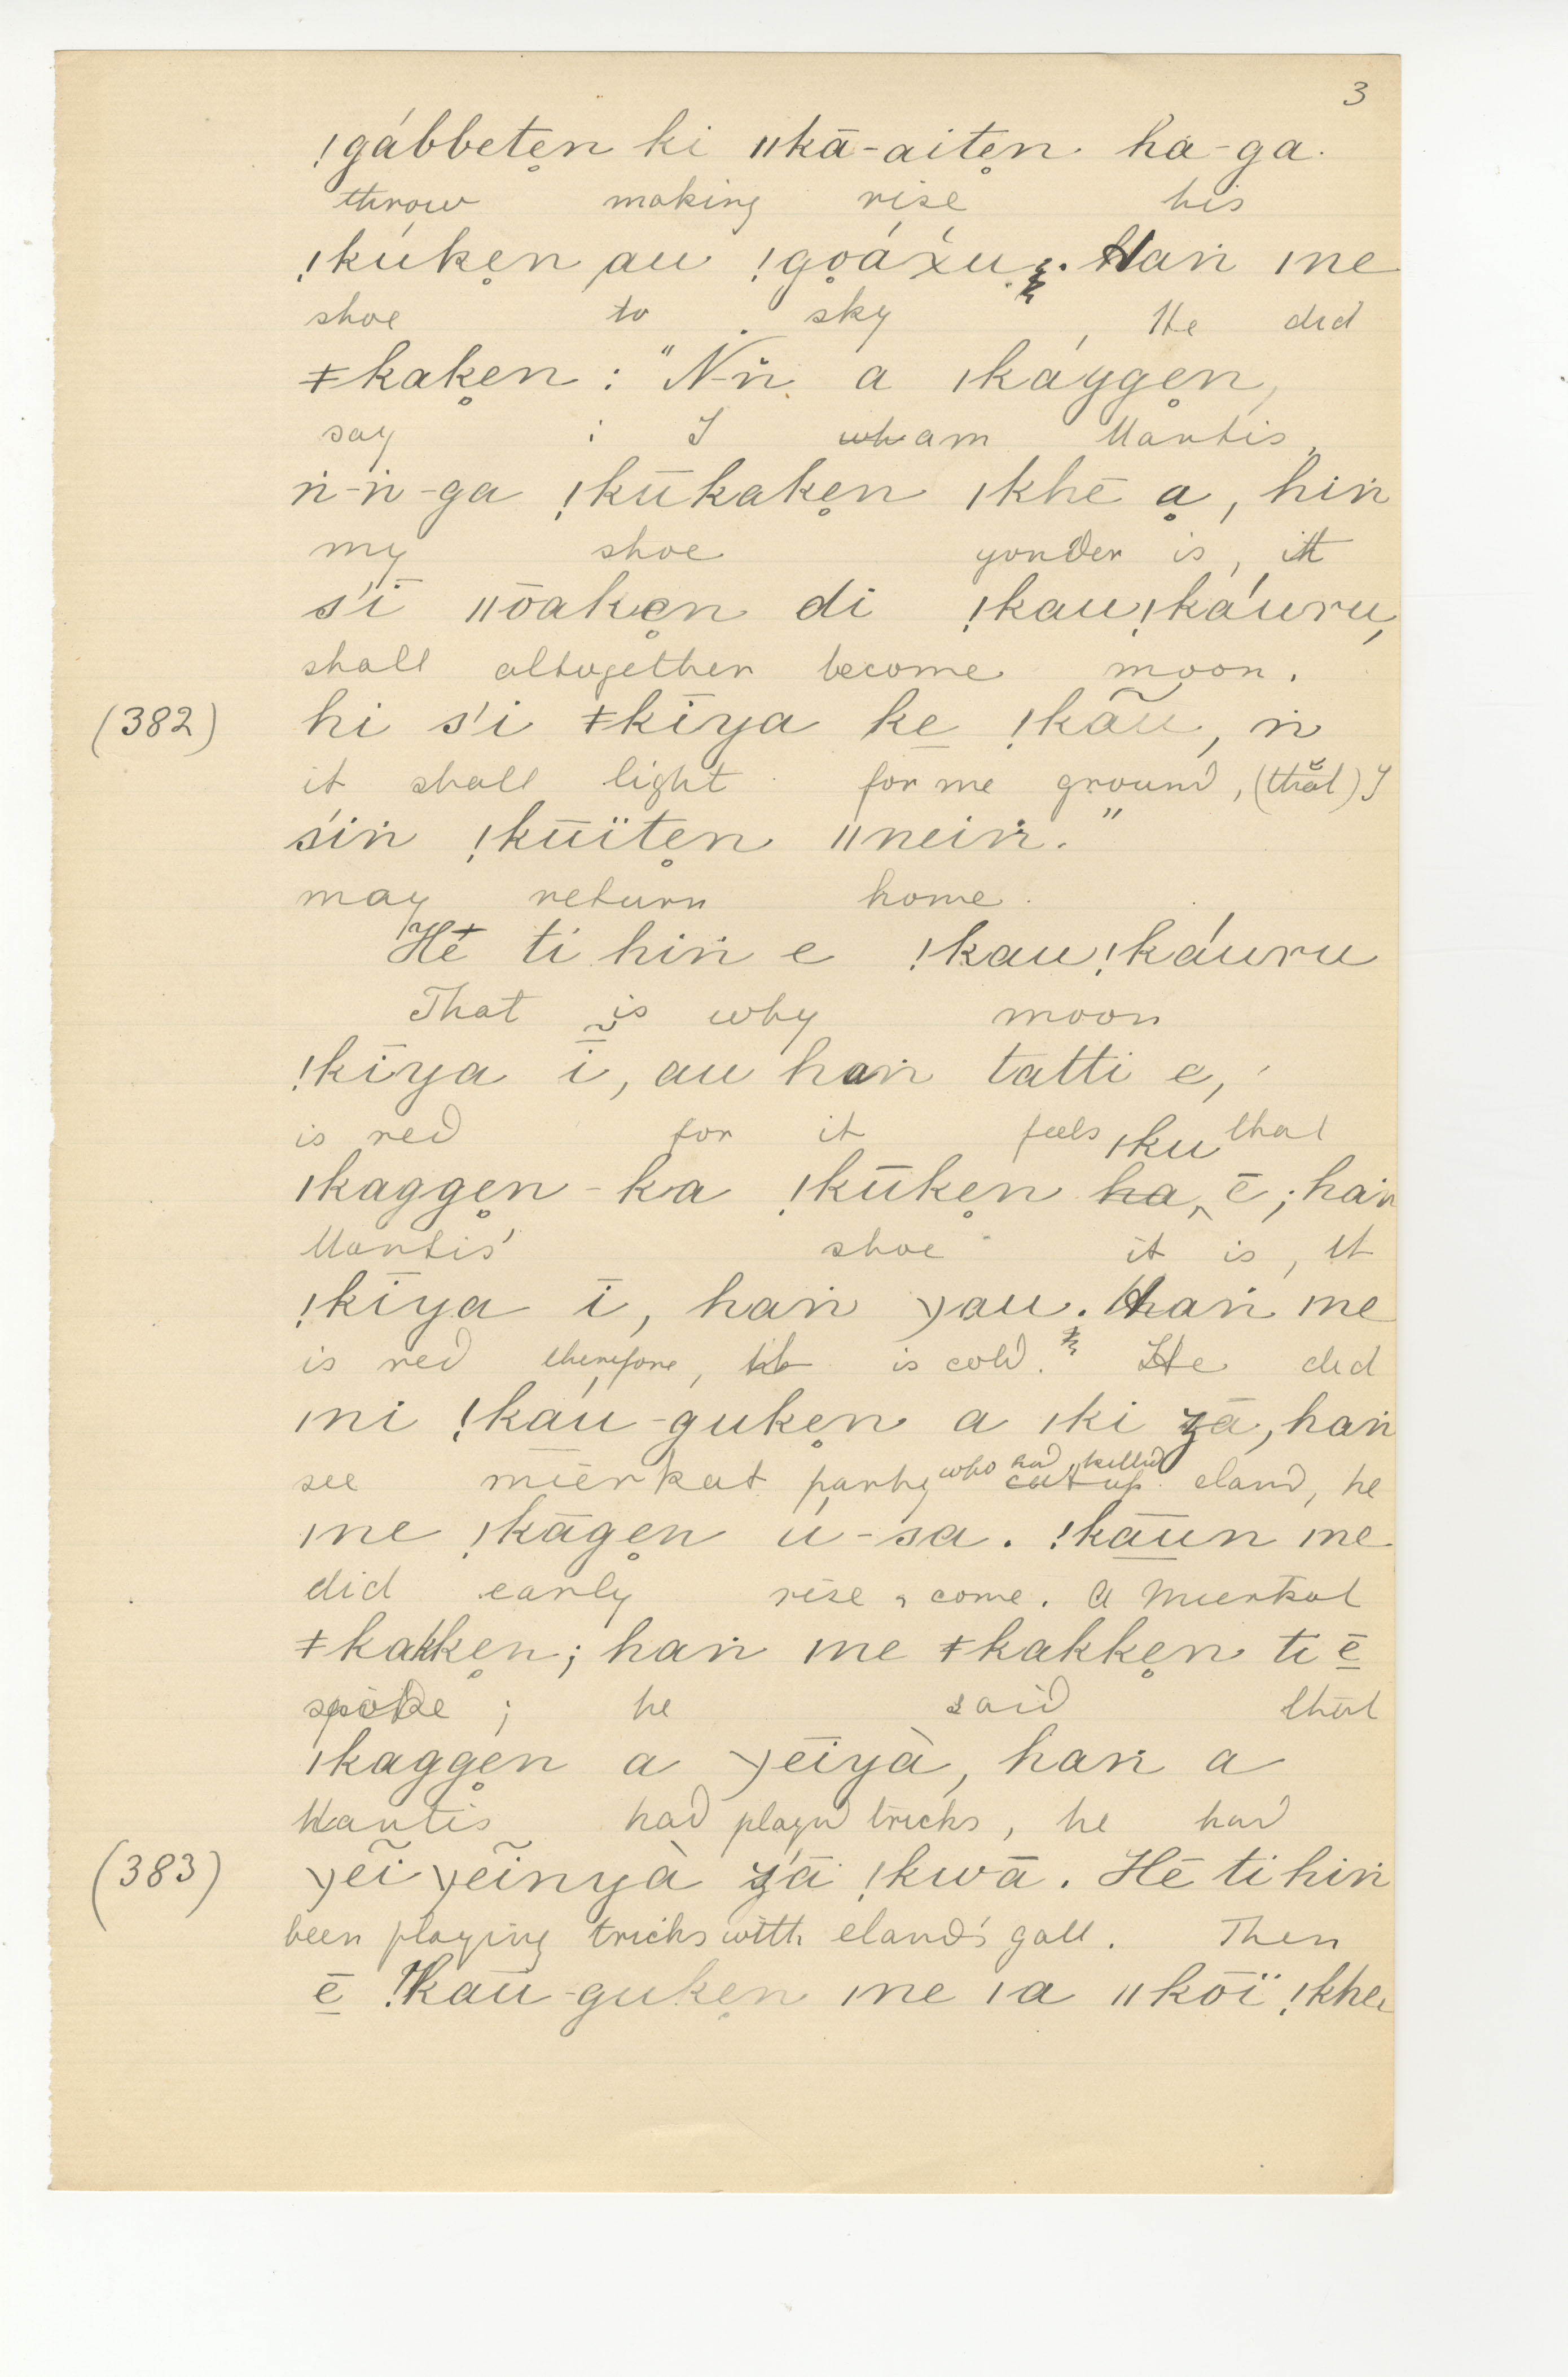 3
!gábbetẹn ki ǁkā-aitẹn ha-ga.
throw making rise his
!kúkẹn au !gọáx̀u. Haṅ ıne
shoe to sky, He did
ǂkakẹn: "Ṅ-ṅ a ıkággẹn,
say : I am Mantis,
ṅ-ṅ-ga !kūkakẹn ıkhē ạ, hiṅ
my shoe yonder is, it
s'ī ǁōakẹn di !kau!káuru,
shall altogether become moon.
(382) hi s'i ǂkīya ke̱ !kãu, ṅ
it shall light for me ground, (that) I
s'iṅ !kūïtẹn ǁneiṅ."
may return home.
Hé ti hiṅ e !kau!káuru
That is why moon
!kīya ī̃, au haṅ tatti e,
is red for it feels that
ıkaggẹn-ka !kūkẹn ıku ē; haṅ
Mantis' shoe it is, it
!kīya ī, haṅ yau. Haṅ ıne
is red therefore, it is cold. He did
ıni !káu-gukẹn a ıki s̱ā, haṅ
see mierkat party who had killed eland, he
ıne !kāgẹn ú-sa. !kāu̱n ıne
did early rise & come. A Mierkat
ǂkakkẹn; haṅ ıne ǂkakkẹn ti ē̱
spoke; he said that
ıkaggẹn a yēiyà, haṅ a
Mantis had played tricks, he had
(383) yẽi yẽinyà s̱ā !kwā. Hē ti hiṅ
been playing tricks with eland's gall. Then
ē̱ !kaū-gukẹn ıne ıa ǁkōï !khe